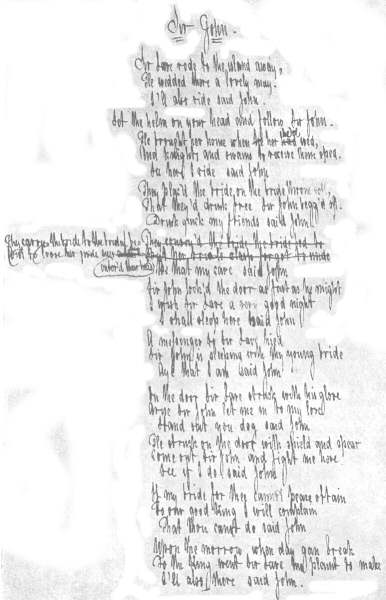 Sir John.
Sir Lave rode to the island away,
He wedded there a lovely may.
I'll also ride said John.
Set the helm on your head and follow Sir John.
He brought her home when he her had wed,
And knights and swains to receive them sped.
I'm here I ride said John
They plac'd the bride, on the bride throne
That they'd drink free Sir John begg'd of.
Drink quick my friends said John
They carry the bride to the bridal bed They carry'd the bride the bride bed to
to loose her forgot to undo
untie'd
See that my care said John
Sir John lock'd the door as fast as he might
I wish Sir Lave a very good night
I shall sleep here said John
A messenger to Sir Lave hied
Sir John is sleeping with thy young bride
Aye that I am said John
On the door Sir Lave struck with his glove
Arise Sir John let me in to my love
Stand out you dog said John
He struck on the door with shield and spear
Come out Sir John and fight me here
See if I do said John
If my bride for thee cannot peace obtain
To our good King I will complain
That thou canst do said John
Upon the morrow when day gan break
To the King went Sir Lave his plaint to make
I'll also there said John.